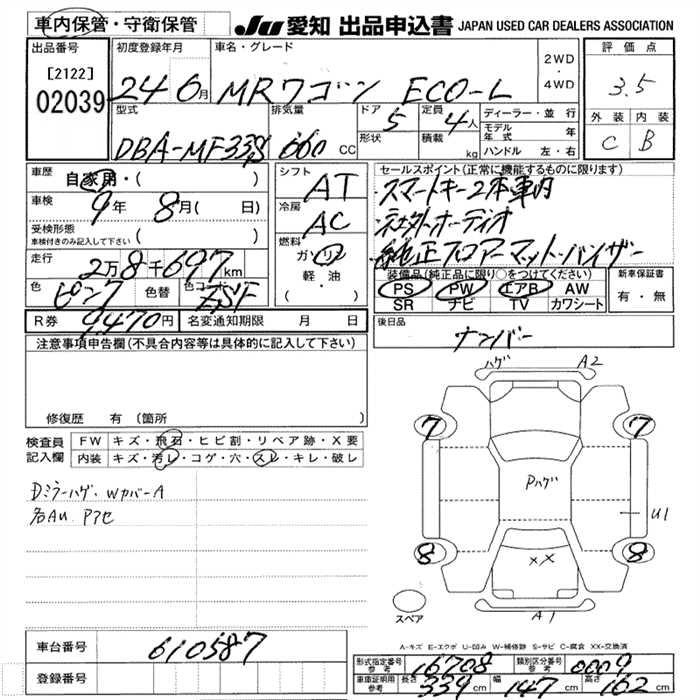 車内保管・守衛保管
JU 愛知 出品申込書 JAPAN USED CAR DEALERS ASSOCIATION
出品番号
[2122]
02039
初度登録年月
24 6月
車名・グレード
MRワゴン ECO-L
2WD
・
4WD
評価点
3.5
外装 内装
C B
型式
DBA-MF33S
排気量
660 CC
ドア 5
形状
定員 4人
積載 kg
ディーラー・並行
モデル年式 年
ハンドル 左・右
車歴
自家用・( )
車検
9年 8月( 日)
受検形態
車検付きのみ記入して下さい ( )
走行
2万8千697km
色 ピンク
色替
色コード ZSF
シフト
AT
冷房
AC
燃料
ガソリン
軽・油
( )
セールスポイント(正常に機能するものに限ります)
・スマートキー2本車内
・社外オーディオ
・純正フロアーマット・バイザー
装備品(純正品に限り○をつけてください)
PS PW エアB AW
SR ナビ TV カワシート
新車保証書
有・無
R券 9,470円
名変通知期限 月 日
後日品
ナンバー
注意事項申告欄(不具合内容等は具体的に記入して下さい)
修復歴 有 (箇所 )
検査員
記入欄
FW キズ・飛石・ヒビ割・リペア跡・X要
内装 キズ・汚レ・コゲ・穴・スレ・キレ・破レ
Dミラーハゲ・WカバーA
各AU Pアセ
ハゲ A2
7 7
Pハゲ
U1
8 8
XX
A1
スペア
A-キズ E-エクボ U-凹み W-補修跡 S-サビ C-腐食 XX-交換済
車台番号 610587
登録番号
形式指定番号
参考 16708
類別区分番号
参考 0009
車庫証明用
参考
長さ 339cm 幅 147cm 高さ 162cm